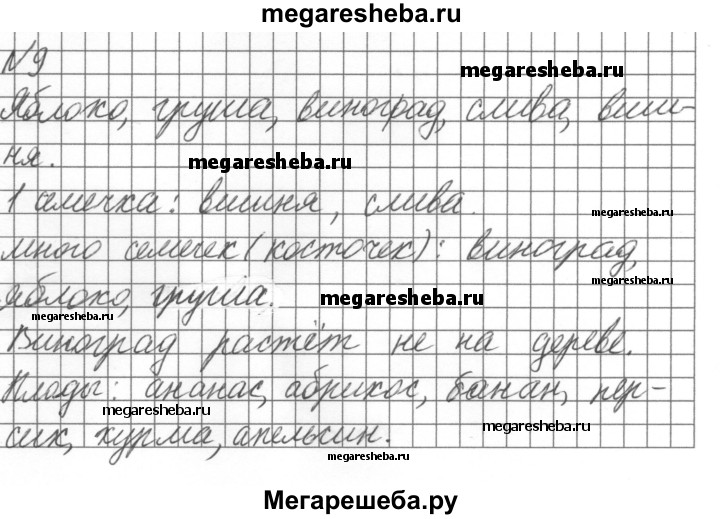 megaresheba.ru
N 9
megaresheba.ru
Яблоко, груша, виноград, слива, виш-
ня.
megaresheba.ru
1 семечка: вишня, слива.
megaresheba.ru
много семечек (косточек): виноград,
megaresheba.ru
яблоко, груша.
megaresheba.ru
megaresheba.ru
Виноград растёт не на дереве.
Плады: ананас, абрикос, банан, пер-
megaresheba.ru
сик, хурма, апельсин.
megaresheba.ru
megaresheba.ru
Мегарешеба.ру